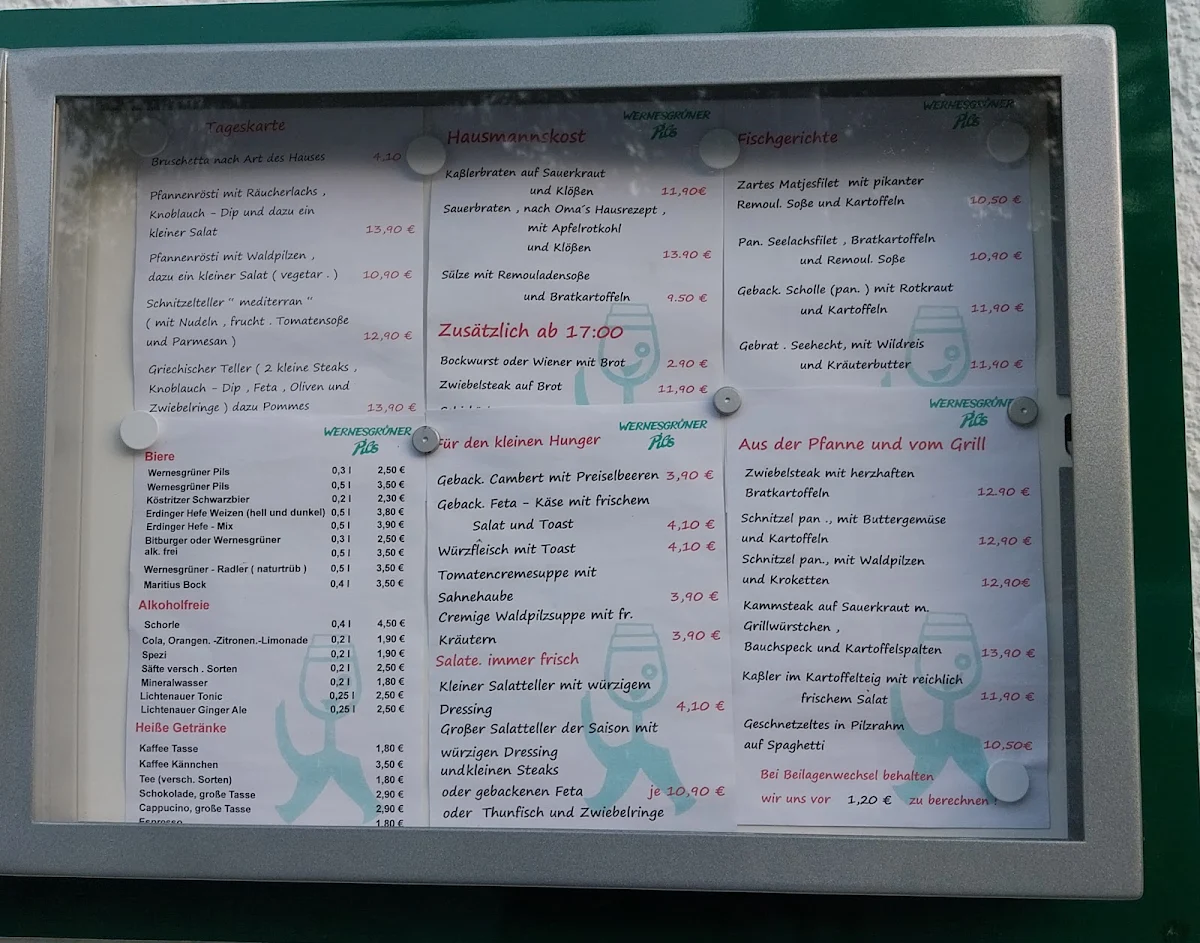 Tageskarte
Bruschetta nach Art des Hauses 4,10
Pfannenrösti mit Räucherlachs ,
Knoblauch - Dip und dazu ein
kleiner Salat 13,90 €
Pfannenrösti mit Waldpilzen ,
dazu ein kleiner Salat ( vegetar . ) 10,90 €
Schnitzelteller " mediterran "
( mit Nudeln , frucht . Tomatensoße
und Parmesan ) 12,90 €
Griechischer Teller ( 2 kleine Steaks ,
Knoblauch - Dip , Feta , Oliven und
Zwiebelringe ) dazu Pommes 13,90 €
WERNESGRÜNER
Pils
Hausmannskost
Kaßlerbraten auf Sauerkraut
und Klößen 11,90€
Sauerbraten , nach Oma´s Hausrezept ,
mit Apfelrotkohl
und Klößen
13.90 €
Sülze mit Remouladensoße
und Bratkartoffeln 9.50 €
Zusätzlich ab 17:00
Bockwurst oder Wiener mit Brot 2.90 €
Zwiebelsteak auf Brot 11,90 €
WERNESGRÜNER
Pils
Fischgerichte
Zartes Matjesfilet mit pikanter
Remoul. Soße und Kartoffeln 10,50 €
Pan. Seelachsfilet , Bratkartoffeln
und Remoul. Soße 10,90 €
Geback. Scholle (pan. ) mit Rotkraut
und Kartoffeln 11,90 €
Gebrat . Seehecht, mit Wildreis
und Kräuterbutter 11,90 €
WERNESGRÜNER
Pils
Biere
Wernesgrüner Pils 0,3 l 2,50 €
Wernesgrüner Pils 0,5 l 3,50 €
Köstritzer Schwarzbier 0,2 l 2,30 €
Erdinger Hefe Weizen (hell und dunkel) 0,5 l 3,80 €
Erdinger Hefe - Mix 0,5 l 3,90 €
Bitburger oder Wernesgrüner 0,3 l 2,50 €
alk. frei 0,5 l 3,50 €
Wernesgrüner - Radler ( naturtrüb ) 0,5 l 3,50 €
Maritius Bock 0,4 l 3,50 €
Alkoholfreie
Schorle 0,4 l 4,50 €
Cola, Orangen. -Zitronen.-Limonade 0,2 l 1,90 €
Spezi 0,2 l 1,90 €
Säfte versch . Sorten 0,2 l 2,50 €
Mineralwasser 0,2 l 1,80 €
Lichtenauer Tonic 0,25 l 2,50 €
Lichtenauer Ginger Ale 0,25 l 2,50 €
Heiße Getränke
Kaffee Tasse 1,80 €
Kaffee Kännchen 3,50 €
Tee (versch. Sorten) 1,80 €
Schokolade, große Tasse 2,90 €
Cappucino, große Tasse 2,90 €
Espresso 1,80 €
WERNESGRÜNER
Pils
Für den kleinen Hunger
Geback. Cambert mit Preiselbeeren 3,90 €
Geback. Feta - Käse mit frischem
Salat und Toast 4,10 €
Würzfleisch mit Toast 4,10 €
Tomatencremesuppe mit
Sahnehaube 3,90 €
Cremige Waldpilzsuppe mit fr.
Kräutern 3,90 €
Salate. immer frisch
Kleiner Salatteller mit würzigem
Dressing 4,10 €
Großer Salatteller der Saison mit
würzigen Dressing
undkleinen Steaks
oder gebackenen Feta je 10,90 €
oder Thunfisch und Zwiebelringe
WERNESGRÜNE
Pils
Aus der Pfanne und vom Grill
Zwiebelsteak mit herzhaften
Bratkartoffeln 12.90 €
Schnitzel pan ., mit Buttergemüse
und Kartoffeln 12,90 €
Schnitzel pan., mit Waldpilzen
und Kroketten 12,90€
Kammsteak auf Sauerkraut m.
Grillwürstchen ,
Bauchspeck und Kartoffelspalten 13,90 €
Kaßler im Kartoffelteig mit reichlich
frischem Salat 11,90 €
Geschnetzeltes in Pilzrahm
auf Spaghetti 10,50€
Bei Beilagenwechsel behalten
wir uns vor 1,20 € zu berechnen !